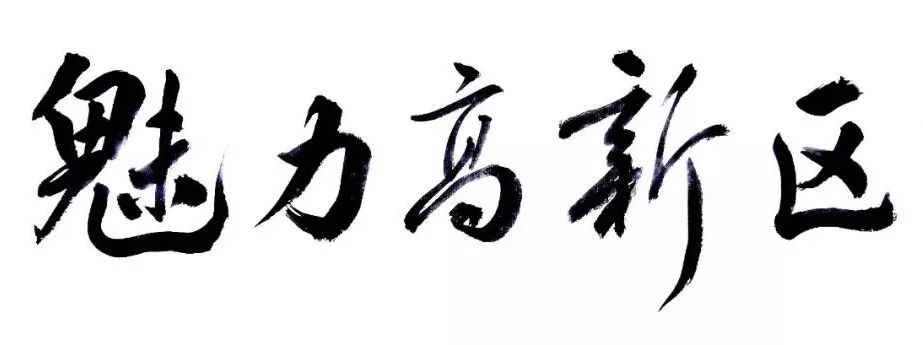 魅力高新区